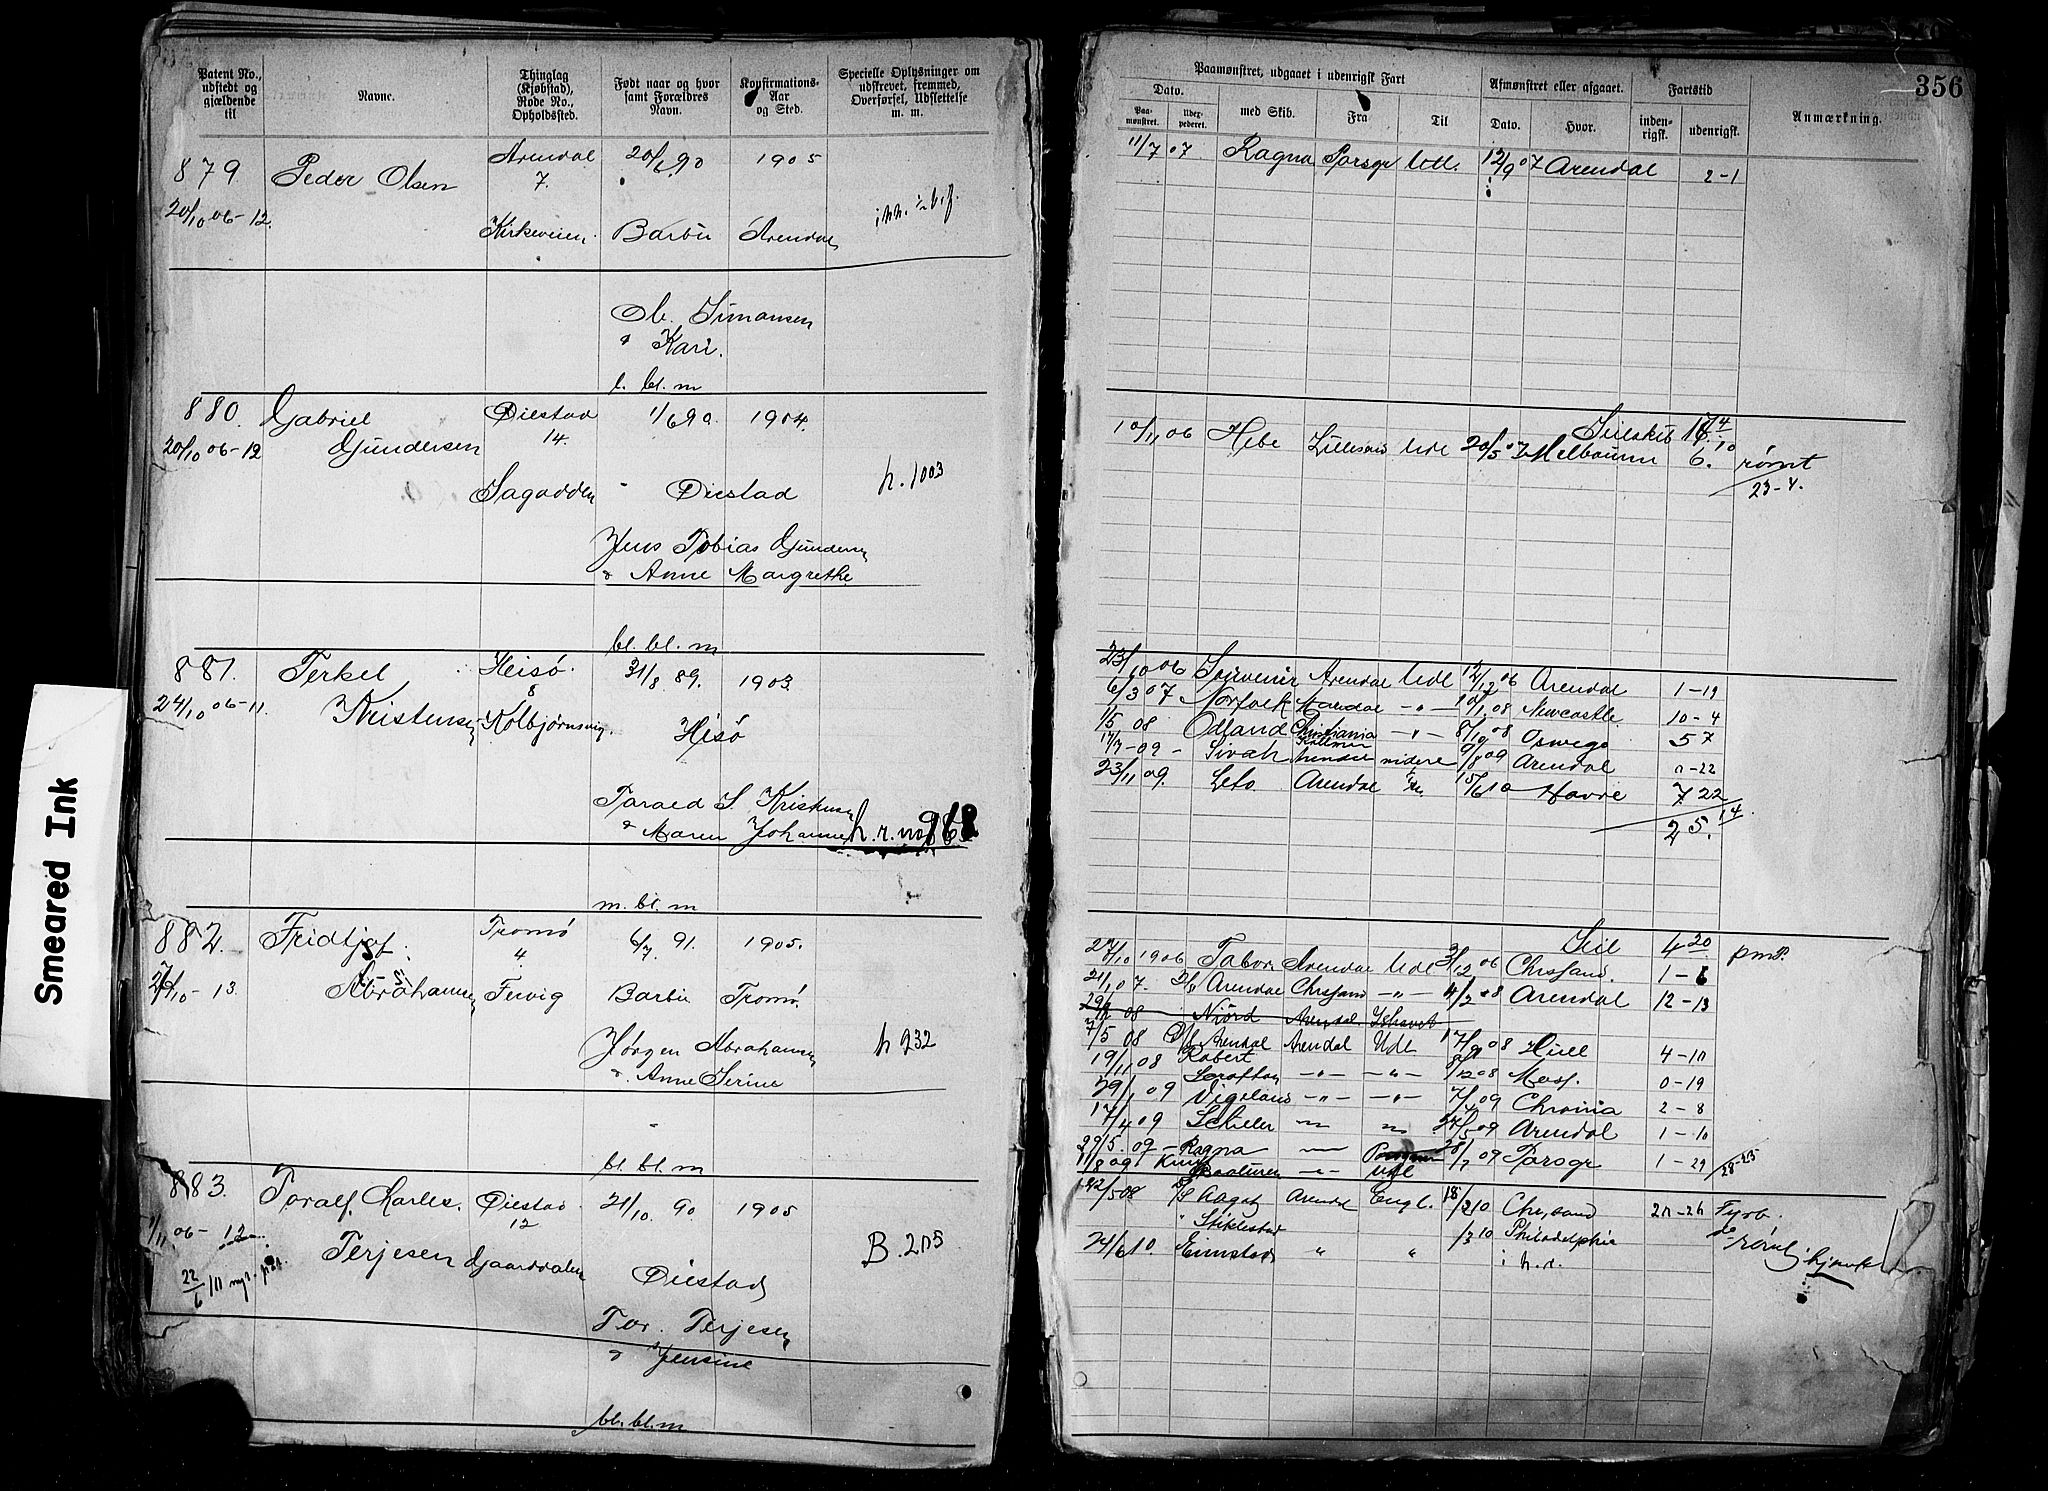 Smeared Ink
356
Patent No., udstedt og gjældende til
Navne.
Thinglag (Kjøbstad), Rode No., Opholdssted.
Født naar og hvor samt Forældres Navn.
Konfirmations-Aar og Sted.
Specielle Oplysninger om udskrevet, fremmed, Overførsel, Udslettelse m. m.
879 Peder Olsen Arendal 20/1 90 1905
7.
20/10 06-12. Kirkeveien. Barbu Arendal
Ole Simonsen
& Kari.
l. bl. m
880. Gabriel Øiestad 1/6 90. 1904.
20/10 06-12 Gundersen 14.
Sagodden Øiestad h. 1003
Jens Tobias Gundersen
& Anne Margrethe
bl. bl. m
881. Terkel Heisø. 31/8 89. 1903.
8
24/10 06-11 Kristensen Kolbjørnsvig. Hisø
Tarald S. Kristensen
& Maren Johanne h. r. no 968
m. bl. m
882. Fridtjof Tromø 6/7 91. 1905.
4
27/10 - 13. Abrahamsen Fervig Barbu Tromø.
Jørgen Abrahamsen h 932
& Anne Serine
bl. bl. m
883. Toralf Charles. Øiestad 21/10 90 1905
12
1/11 06-12 Terjesen Gjaarddalen Øiestad B. 205
22/6
Tor. Terjesen
& Jensine
bl. bl. m
Paamønstret, udgaaet i udenrigsk Fart
Afmønstret eller afgaaet.
Fartstid
Dato.
Paamønstret. Udexpederet. med Skib. Fra Til Dato. Hvor. indenrigsk. udenrigsk. Anmærkning.
11/7 07 Ragna Porsgr Udl. 12/9 07 Arendal 2-1
Seilskib
10/11 06 Hebe Lillesand Udl 20/5 07 Melbourne 6. rømt
23-4.
23/10 06 Souvenir Arendal Udl 12/12 06 Arendal 1-19
6/3 07 Norfolk Arendal -"- 10/1 08 Newcastle 10-4
1/5 08 Odland Christiania -"- 8/10 08 Oswego 5 7
17/7-09 - Sirah videre 9/8 09 Arendal 0-22
23/11 09. Leto Arendal 15/6 10 Havre 7 22
25. 14.
Seil 4 20 pmP.
27/10 1906 Tabor Arendal Udl 3/12 06 Chrssand. 1-6
21/1 07. D/S Arendal Chrssand -"- 4/2 08 Arendal 12-13
Niord Arendal Ishavet
7/5 08 D/S Arendal Arendal Udl 17/9 08 Hull 4-10
19/11 08 Robert Moss. 0-19
29/1 09 Vigeland -"- -"- 7/4 09 Chrania 2-8
17/4 09 Schiller Arendal 1-10
29/5. 09 - Ragna 28/7 09 Porsgr 1-29
11/8 09 Knud Udl
22/5 08 D/S Aagot Arendal Engl. 18/2 10 Chr.sand 20-26 Fyrb.
Stiklestad /3 10 Philadelphia do rømt
24/6 10. Grimstad " " i h. r. hjemk